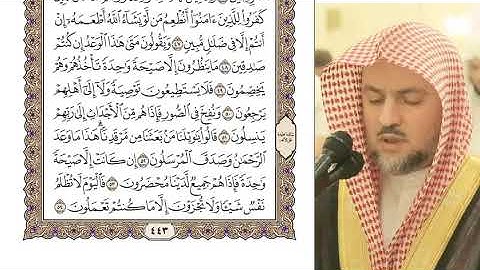 كَفَرُوا۟ لِلَّذِينَ ءَامَنُوٓا۟ أَنُطْعِمُ مَن لَّوْ يَشَآءُ ٱللَّهُ أَطْعَمَهُۥٓ إِنْ
أَنتُمْ إِلَّا فِى ضَلَٰلٍ مُّبِينٍ ٤٧ وَيَقُولُونَ مَتَىٰ هَٰذَا ٱلْوَعْدُ إِن كُنتُمْ
صَٰدِقِينَ ٤٨ مَا يَنظُرُونَ إِلَّا صَيْحَةً وَٰحِدَةً تَأْخُذُهُمْ وَهُمْ
يَخِصِّمُونَ ٤٩ فَلَا يَسْتَطِيعُونَ تَوْصِيَةً وَلَآ إِلَىٰٓ أَهْلِهِمْ
يَرْجِعُونَ ٥٠ وَنُفِخَ فِى ٱلصُّورِ فَإِذَا هُم مِّنَ ٱلْأَجْدَاثِ إِلَىٰ رَبِّهِمْ
يَنسِلُونَ ٥١ قَالُوا۟ يَٰوَيْلَنَا مَنۢ بَعَثَنَا مِن مَّرْقَدِنَا ۜ هَٰذَا مَا وَعَدَ
ٱلرَّحْمَٰنُ وَصَدَقَ ٱلْمُرْسَلُونَ ٥٢ إِن كَانَتْ إِلَّا صَيْحَةً
وَٰحِدَةً فَإِذَا هُمْ جَمِيعٌ لَّدَيْنَا مُحْضَرُونَ ٥٣ فَٱلْيَوْمَ لَا تُظْلَمُ
نَفْسٌ شَيْـًٔا وَلَا تُجْزَوْنَ إِلَّا مَا كُنتُمْ تَعْمَلُونَ ٥٤
٤٤٣